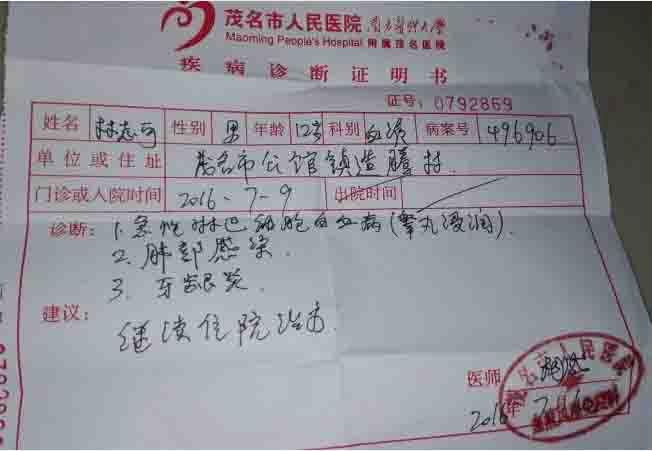 茂名市人民医院 南方医科大学
Maoming People's Hospital 附属茂名医院
疾病诊断证明书
证号: 0792869
姓名 林志可 性别 男 年龄 12岁 科别 血液 病案号 496906
单位或住址 茂名市公馆镇造腾村
门诊或入院时间 2016-7-9 出院时间
诊断: 1. 急性淋巴细胞白血病(睾丸浸润).
2. 肺部感染.
3. 牙龈炎.
建议: 继续住院治疗.
医师
茂名市人民医院
2016